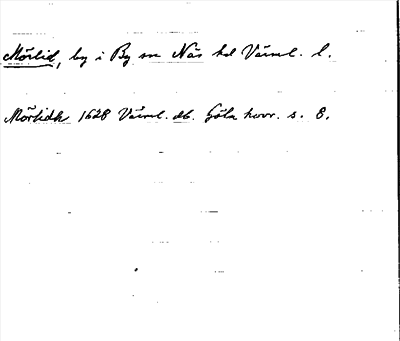 Mörlid, by i By sn Näs hd Värml. l.
Mörlidh 1628 Värml. db. Göta hovr. s. 8.